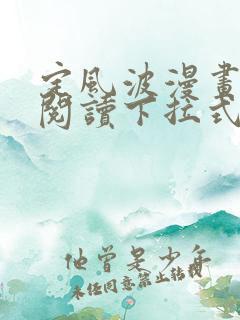 定風波漫畫
閱讀下拉式
他曾是少年
未任同意禁止轉載